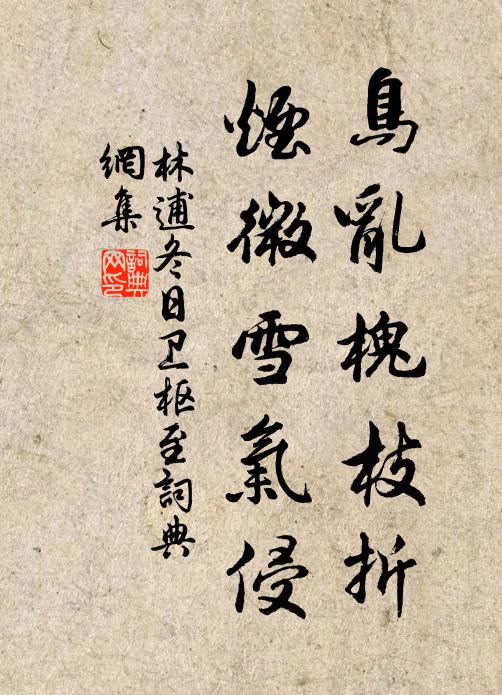 鳥亂槐枝折
煙微雪氣侵
林逋冬日卫枢至詞典
網集
詞典
网印